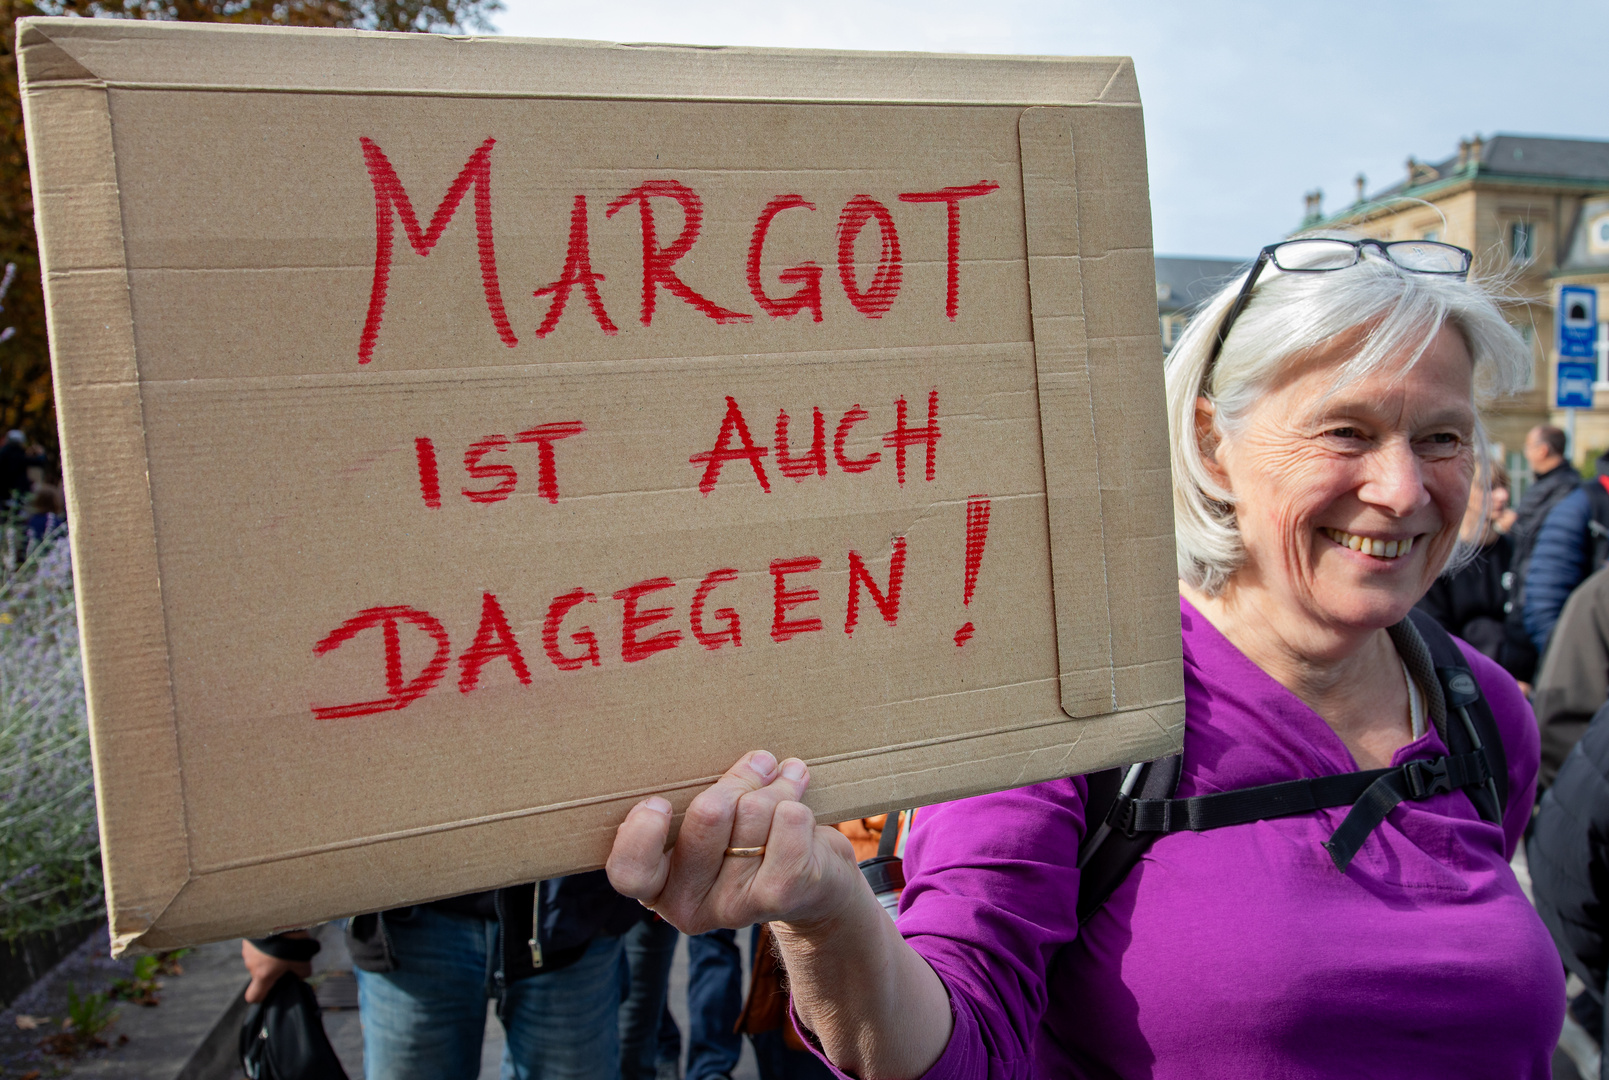 MARGOT
IST AUCH
DAGEGEN!